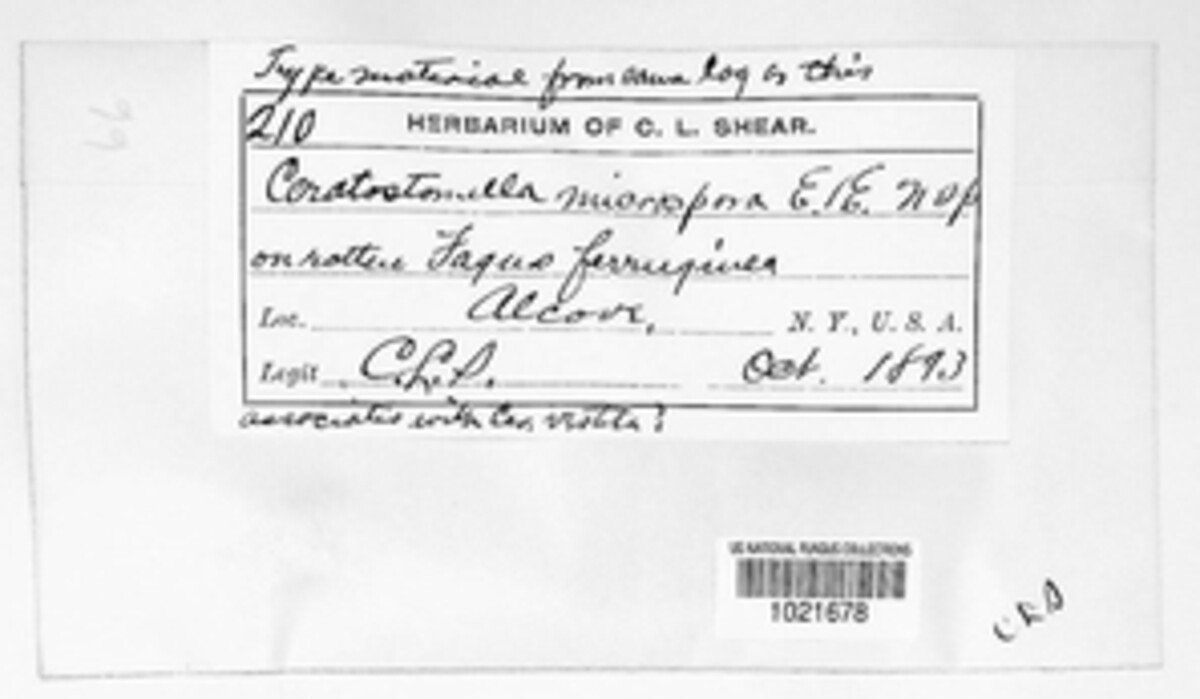 Type material from same log as this
210 HERBARIUM OF C. L. SHEAR.
Ceratostomella microspora E. & E. n sp
on rotten Fagus ferruginea
Loc. Alcove, N. Y., U. S. A.
Legit C.L.S. Oct. 1893
associated with
US NATIONAL FUNGUS COLLECTIONS
1021678